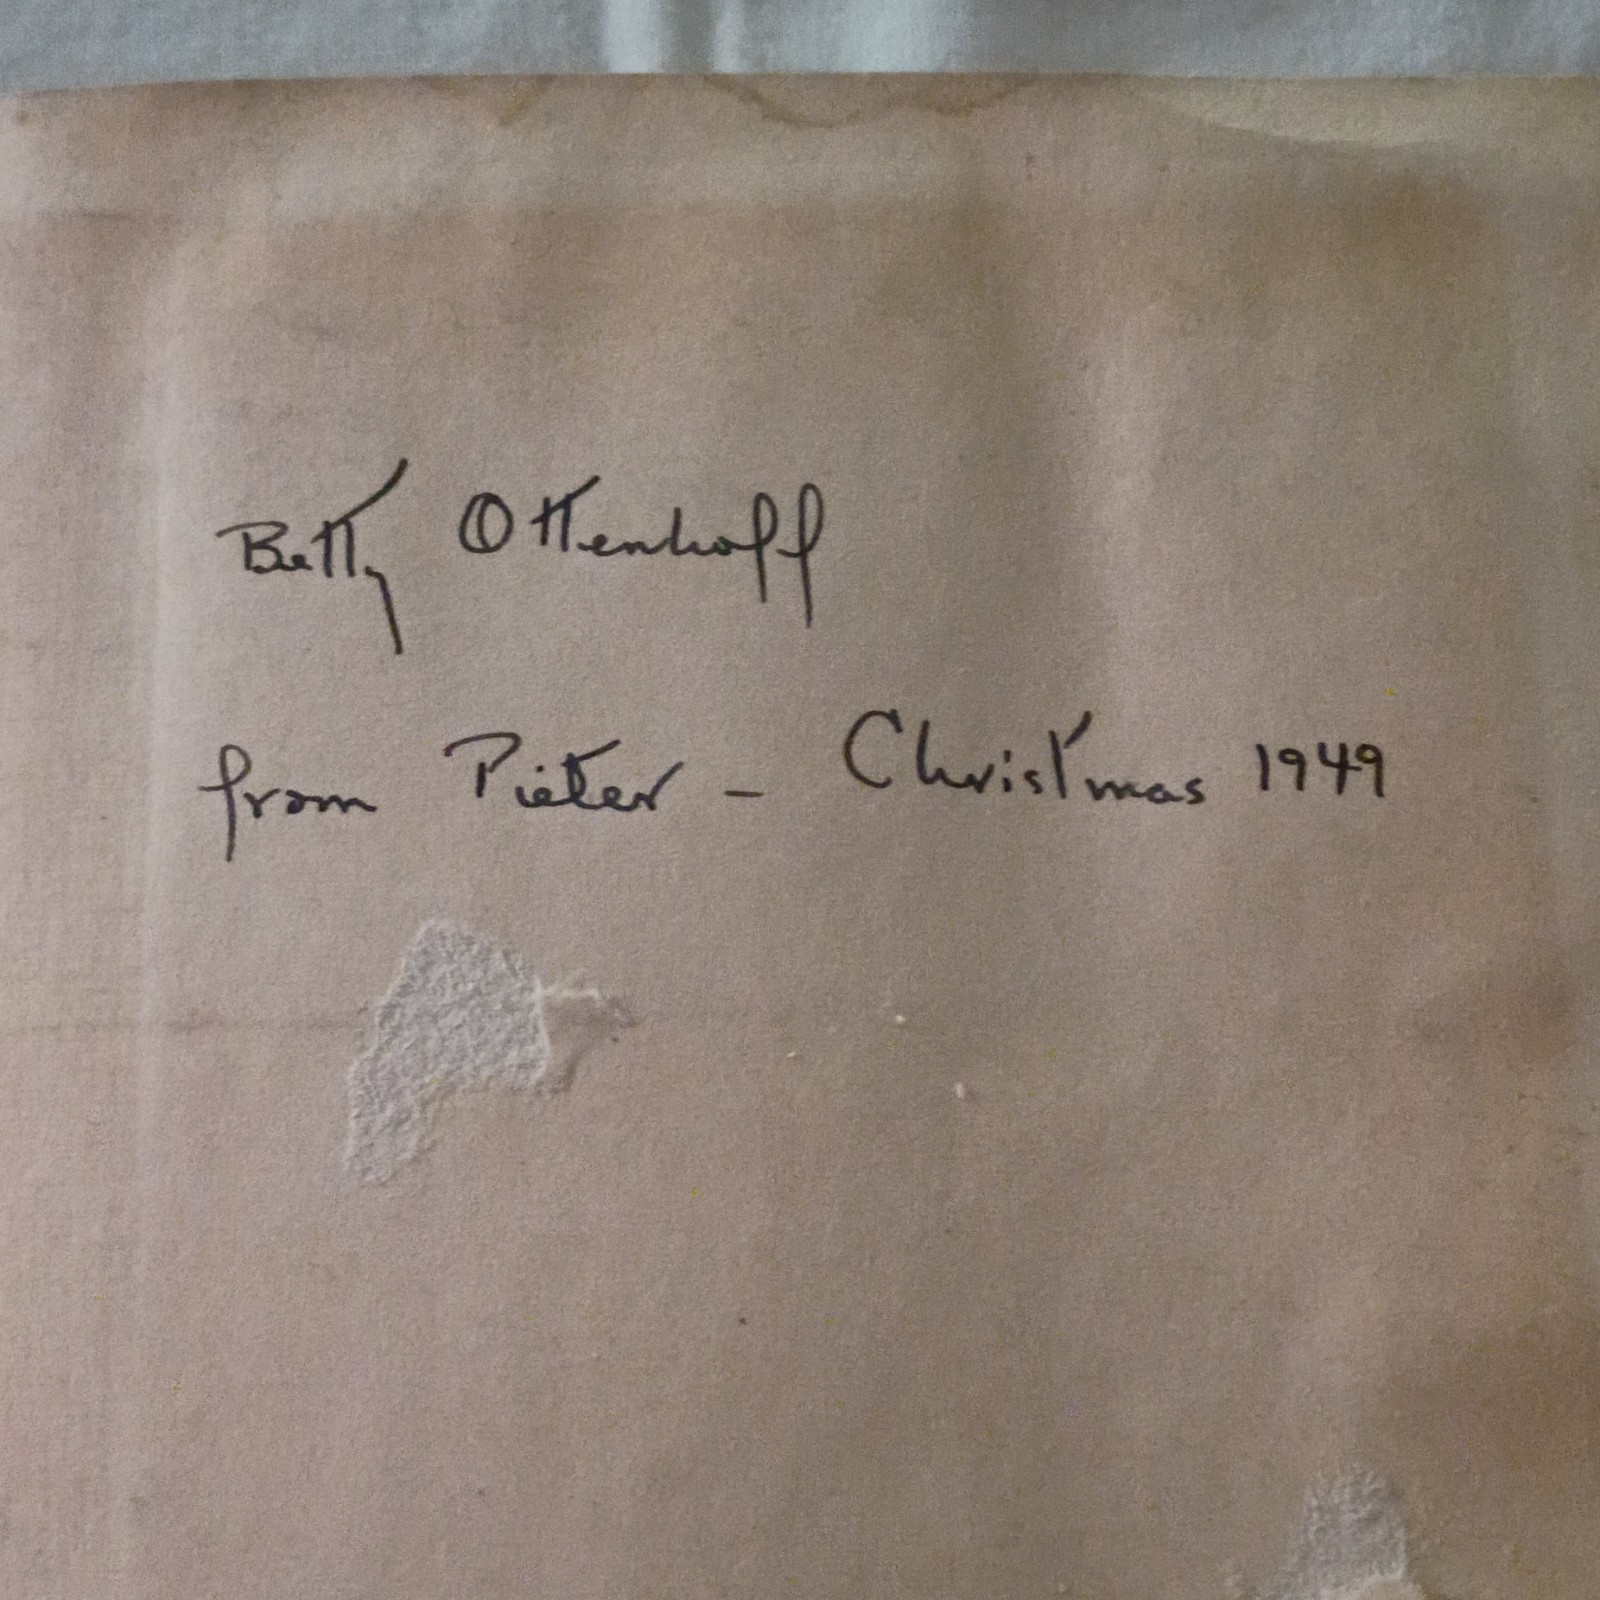 Betty Ottenhoff
from Pieter - Christmas 1949